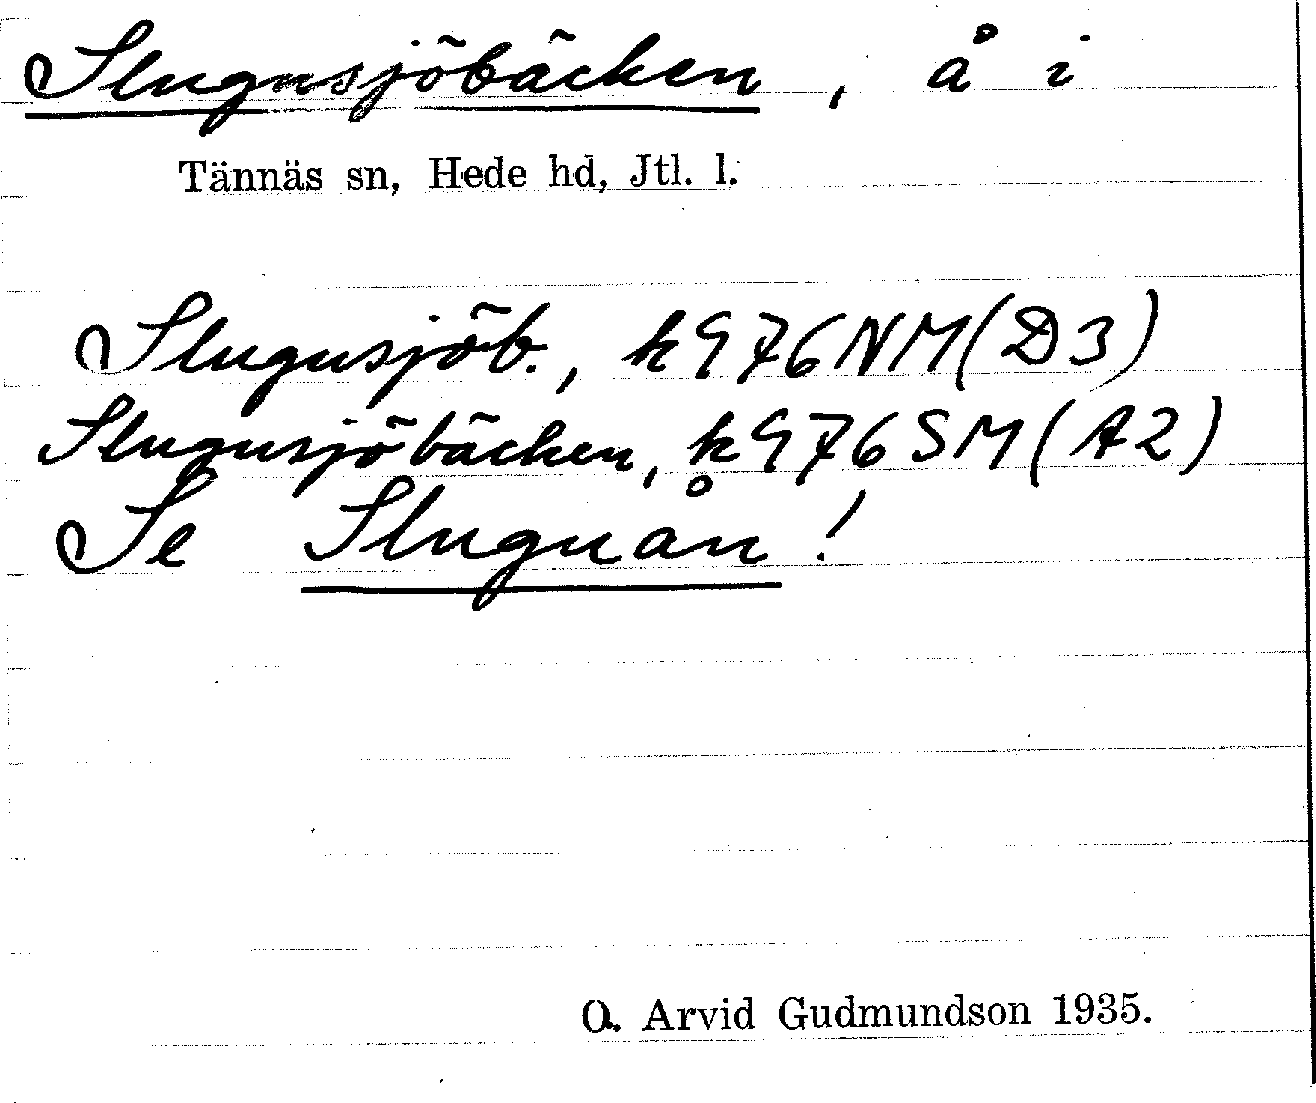 Slugusjöbäcken, å i
Tännäs sn, Hede hd, Jtl. l.
Slugusjöb., k976NM(D3)
Slugusjöbäcken, k976SM(A2)
Se Sluguån!
O. Arvid Gudmundson 1935.